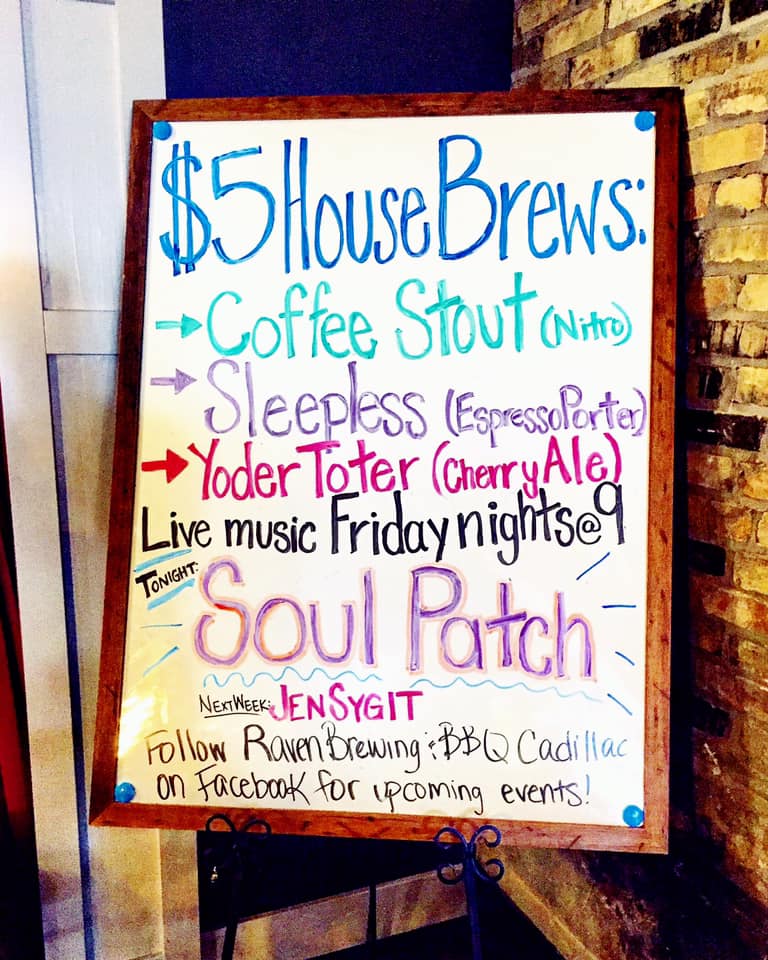 $5 House Brews:
→ Coffee Stout (Nitro)
→ Sleepless (Espresso Porter)
→ Yoder Toter (Cherry Ale)
Live music Friday nights @ 9
TONIGHT:
Soul Patch
NEXT WEEK: JEN SYGIT
Follow Raven Brewing & BBQ Cadillac
on Facebook for upcoming events!